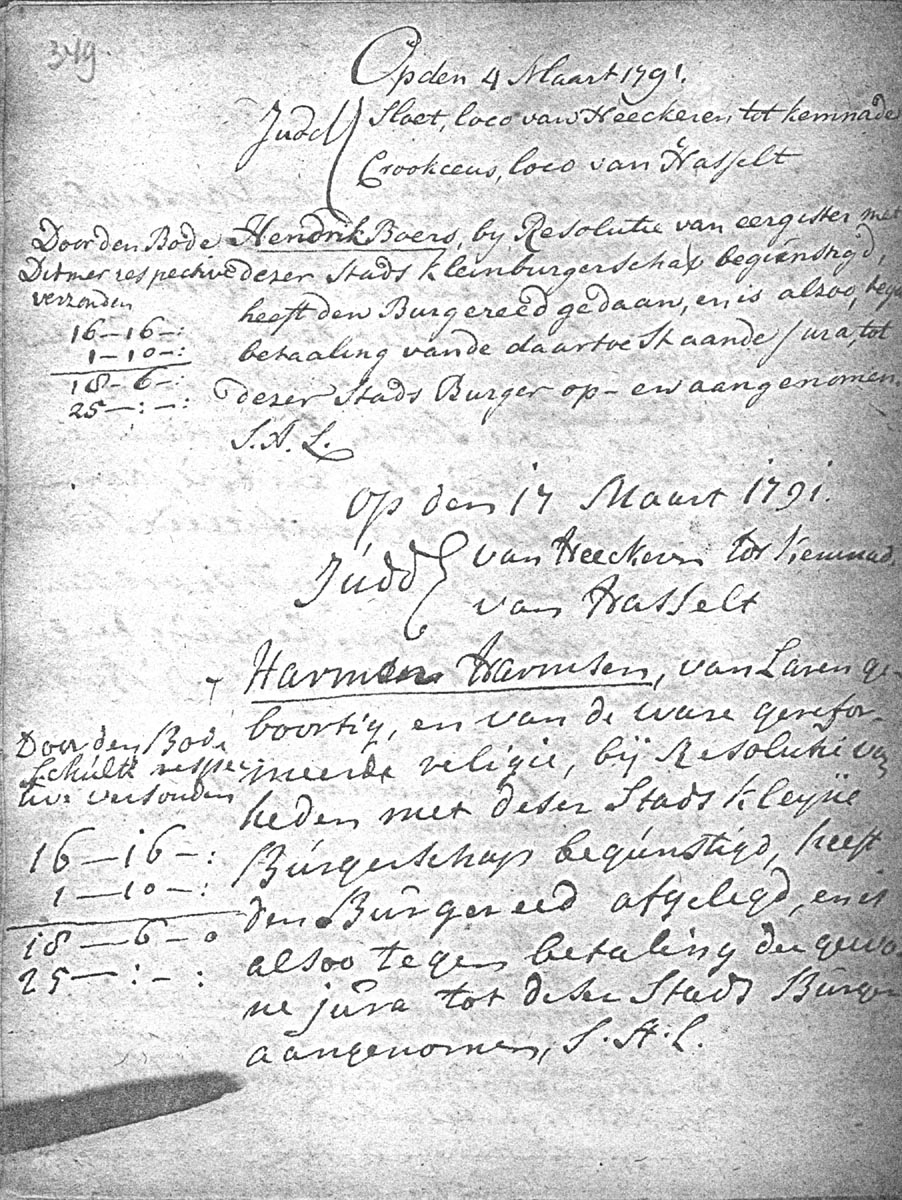 349
Opden 4 Maart 1791.
Judd Sloet, loco van Heeckeren tot kemnade
Crookceus, loco van Hasselt
Doorden Bode
Ditmer respective
verzonden
16-16-:
1-10-:
18-6-:
25-:-:
Hendrik Boers, by Resolutie van eergister met
dezer Stads kleinburgerschap begunstigd,
heeft den Burgereed gedaan, en is alzoo,
betaaling vande daartoe Staande jura, tot
dezer Stads Burger op- en aangenomen.
S.A.L.
Op den 17 Maart 1791.
Judd van Heeckeren tot Kemnad.
van Hasselt
Doorden Bode
Schulte respec
tive versonden
16-16-:
1-10-:
18-6-0
25-:-:
Harmen Harmsen, van Laren ge-
boortig, en van de ware gerefor-
meerde religie, bij Resolutie van
heden met deser Stads kleyne
Burgerschap begunstigd, heeft
den Burgereed afgelegd, en is
alsoo tegen betaling der gewo-
ne jura tot deser Stads Burger
aangenomen, S.A.L.